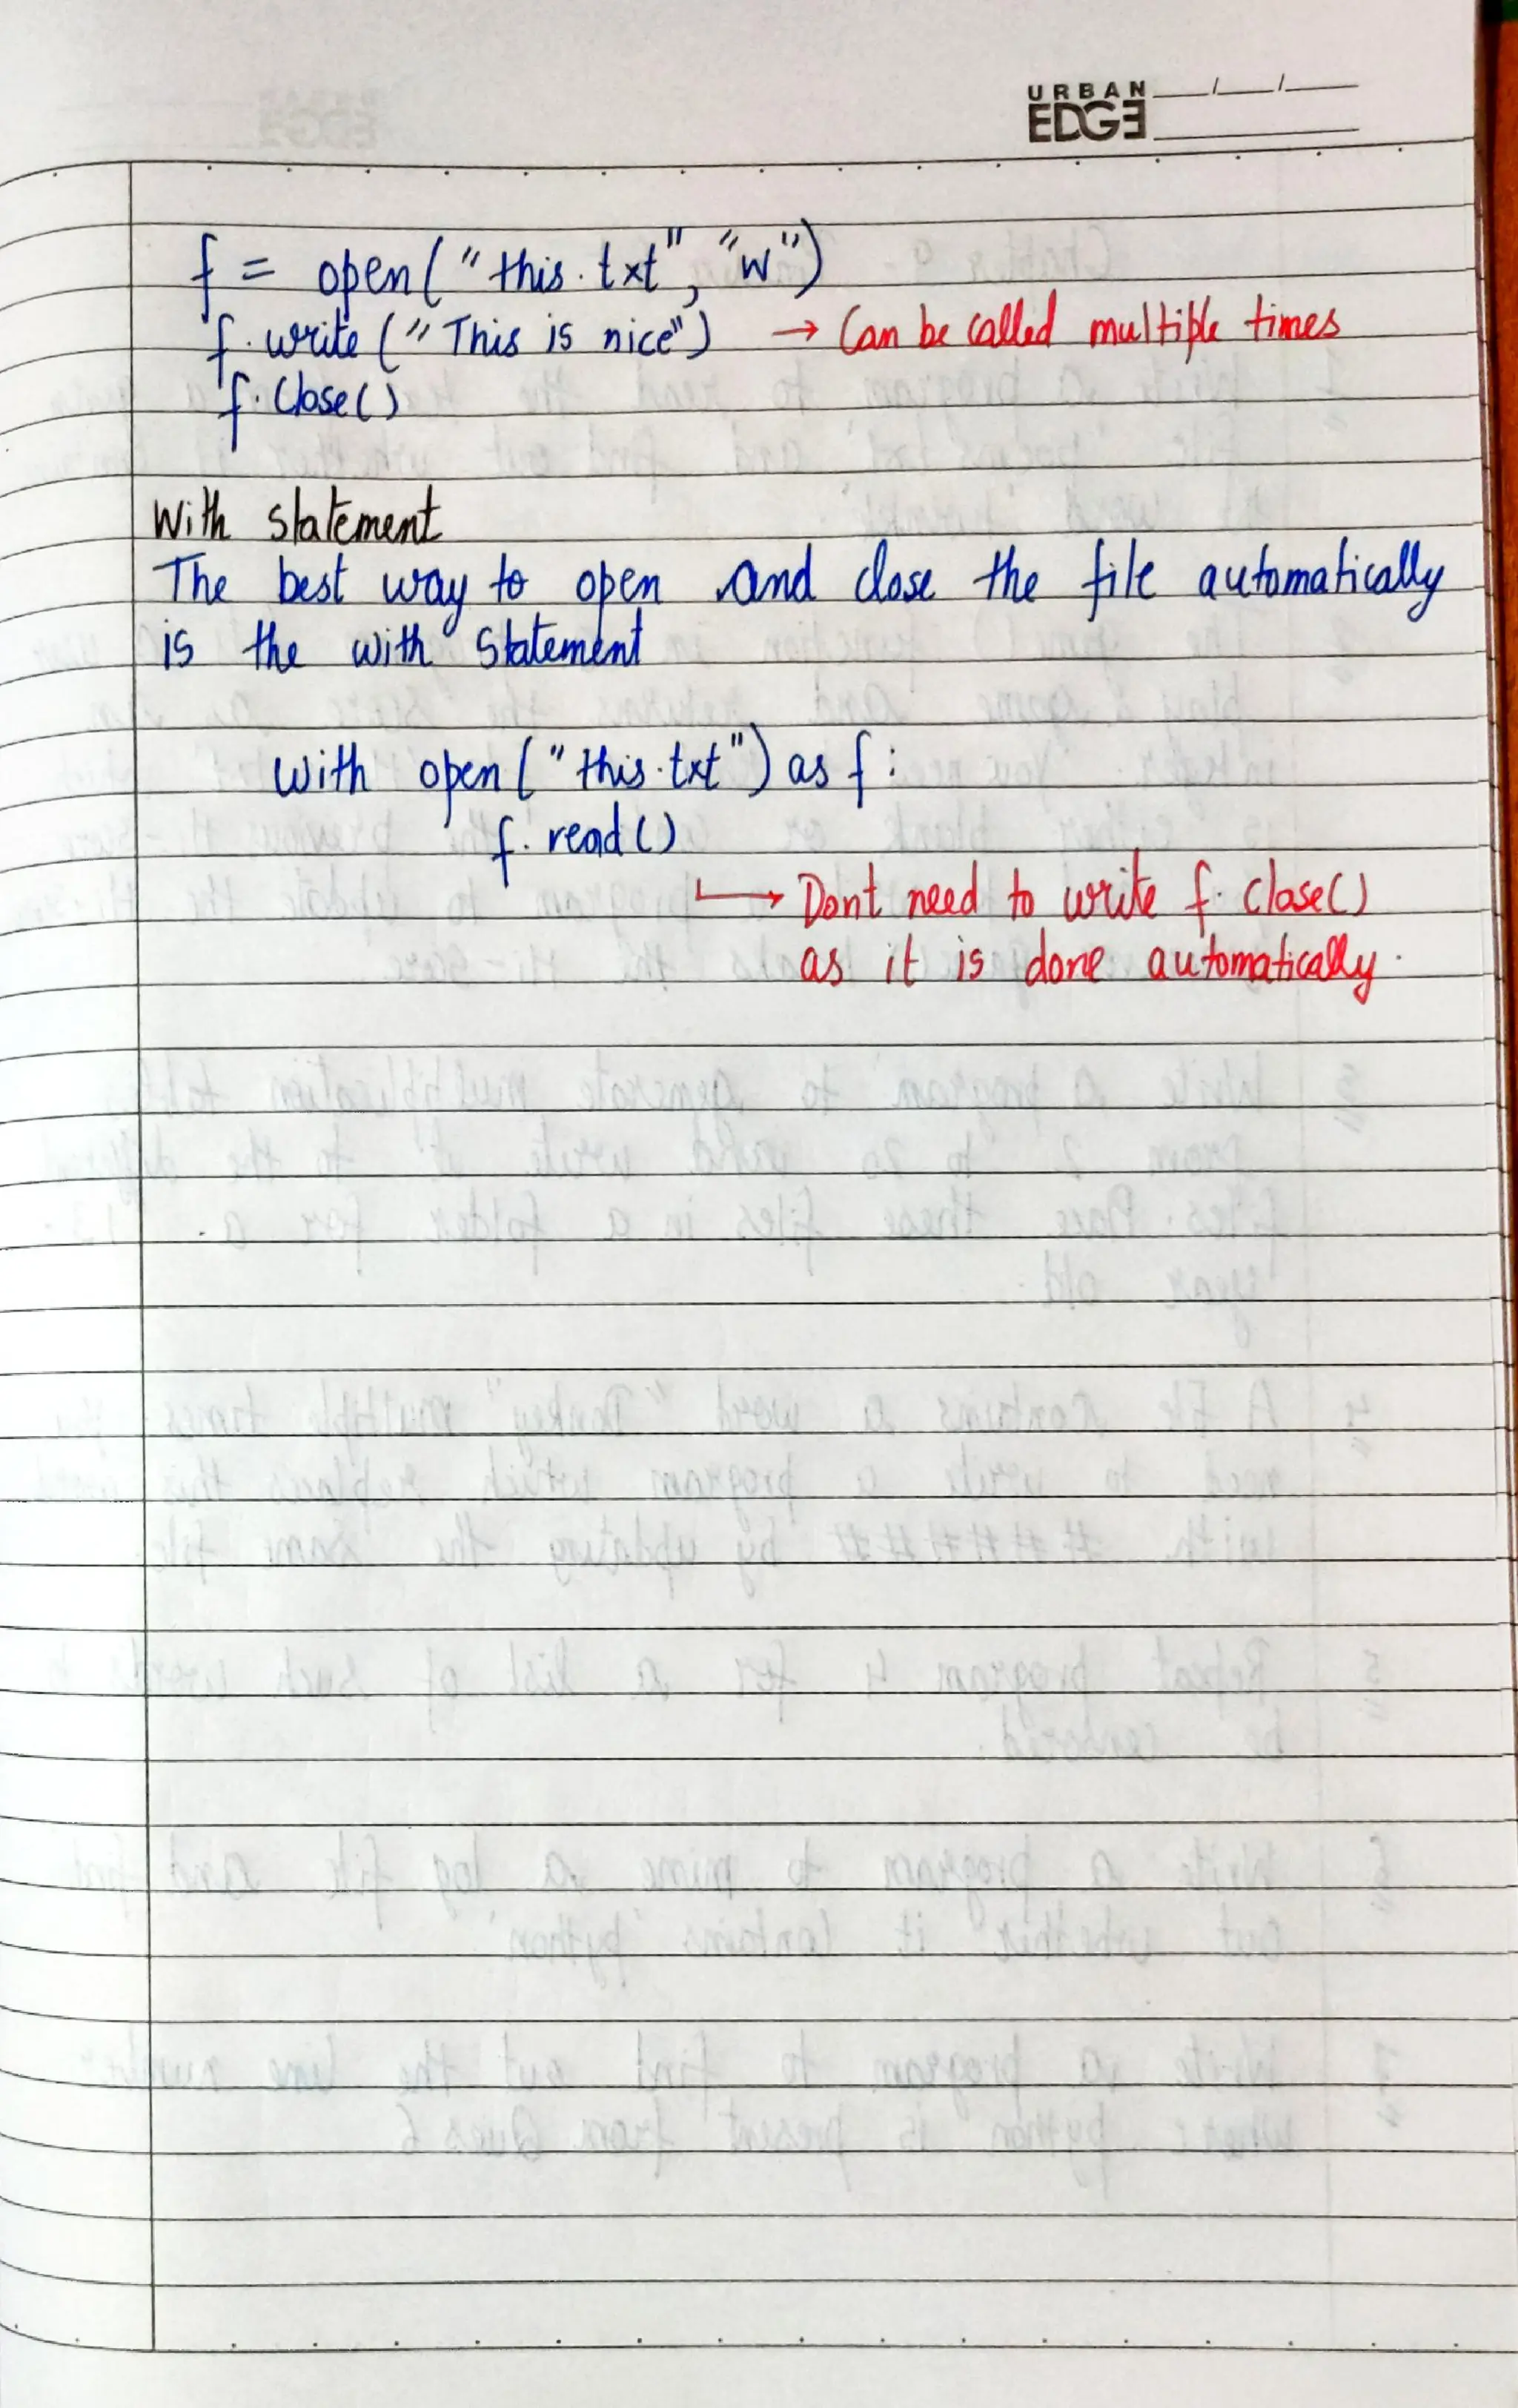 URBAN
EDGE
f = open("this.txt", "w")
f.write("This is nice") → Can be called multiple times
f.close()
With statement
The best way to open and close the file automatically
is the with statement
with open("this.txt") as f:
f.read()
↳ Dont need to write f.close()
as it is done automatically.